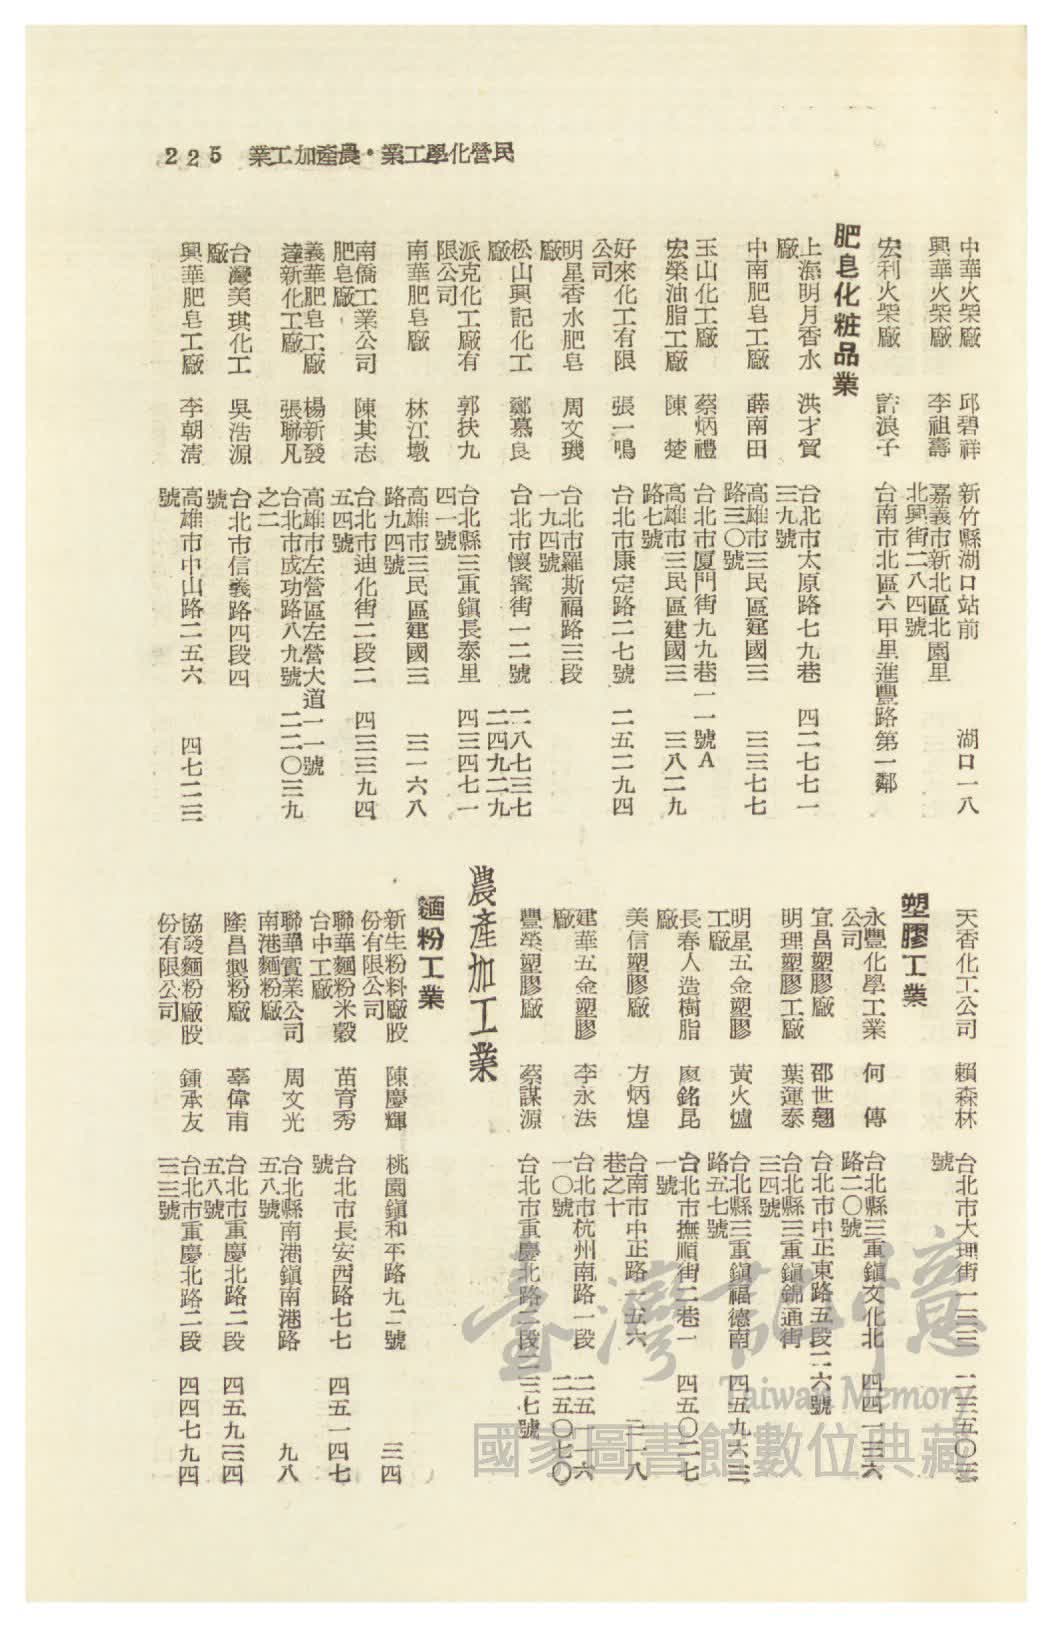 民營化學工業・農產加工業　225
中華火柴廠　邱碧祥　新竹縣湖口站前　湖口一八
興華火柴廠　李祖壽　嘉義市新北區北園里
北興街二八四號
宏利火柴廠　許浪子　台南市北區六甲里進豐路第一鄰
肥皂化粧品業
上海明月香水　洪才質　台北市太原路七九巷　四二七七一
廠　三九號
中南肥皂工廠　薛南田　高雄市三民區建國三　三三七七
路三〇號
玉山化工廠　蔡炳禮　台北市厦門街九九巷一一號A
宏榮油脂工廠　陳　楚　高雄市三民區建國三　三八二九
路七號
好來化工有限　張一鳴　台北市康定路二七號　二五二九四
公司
明星香水肥皂　周文璣　台北市羅斯福路三段
廠　一九四號
松山興記化工　鄭慕良　台北市懷寗街一二號　二八七三七
廠　二四九二九
派克化工廠有　郭扶九　台北縣三重鎮長泰里　四三四七一
限公司　四一號
南華肥皂廠　林江墩　高雄市三民區建國三　三一六八
路九四號
南僑工業公司　陳其志　台北市迪化街二段二　四三三九四
肥皂廠　五四號
義華肥皂工廠　楊新發　高雄市左營區左營大道一一號
達新化工廠　張聯凡　台北市成功路八九號　二二〇三九
之二
台灣美琪化工　吳浩源　台北市信義路四段四
廠　號
興華肥皂工廠　李朝清　高雄市中山路二五六　四七二三
號
天香化工公司　賴森林　台北市大理街一三三　二三五〇三
號
塑膠工業
永豐化學工業　何　傳　台北縣三重鎮文化北　四四一三六
公司　路二〇號
宜昌塑膠廠　邵世翹　台北市中正東路五段二六號
明理塑膠工廠　葉運泰　台北縣三重鎮錦通街
三四號
明星五金塑膠　黃火爐　台北縣三重鎮福德南　四五九六三
工廠　路五七號
長春人造樹脂　廖銘昆　台北市撫順街二巷一　四五〇二七
廠　一號
美信塑膠廠　方炳煌　台南市中正路一五六　二一八
巷之十
建華五金塑膠　李永法　台北市杭州南路一段　二五一一六
廠　一〇號　二五〇七〇
豐榮塑膠廠　蔡謀源　台北市重慶北路二段二三七號
農產加工業
麵粉工業
新生粉料廠股　陳慶輝　桃園鎮和平路九二號　三四
份有限公司
聯華麵粉米穀　苗育秀　台北市長安西路七七　四五一四七
台中工廠　號
聯華實業公司　周文光　台北縣南港鎮南港路　九八
南港麵粉廠　五八號
隆昌製粉廠　辜偉甫　台北市重慶北路二段　四五九三四
五八號
協發麵粉廠股　鍾承友　台北市重慶北路二段　四四七九四
份有限公司　三三號
臺灣記憶
Taiwan Memory
國家圖書館數位典藏